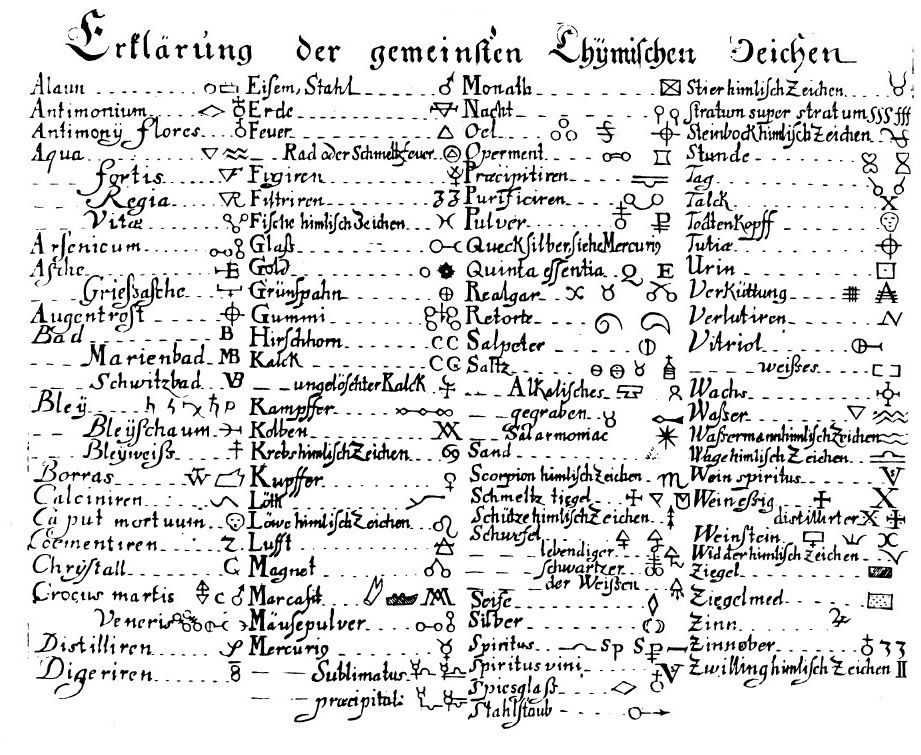 Erklärung der gemeinsten Chÿmischen Zeichen
Alaun
Antimonium
Antimonÿ flores
Aqua
fortis
Regia
Vitæ
Arsenicum
Asche
Griesſasche
Augentrost
Bad
Marienbad MB
Schwitzbad VB
Bleÿ
Bleÿschaum
Bleÿweiß
Borras
Calciniren
Caput mortuum
Coementiren
Chrÿstall
Crocus martis
Veneris
Distilliren
Digeriren
Eisem, Stahl
Erde
Feuer
Rad oder Schmeltzfeuer
Figiren
Filtriren
Fische himlisch Zeichen
Glaß
Gold
Grünspahn
Gummi
Hirschhorn
Kalck
ungelöschter Kalck
Kampffer
Kolben
Krebs himlisch Zeichen
Kupffer
Löth
Löwe himlisch Zeichen
Lufft
Magnet
Marcasit
Mäusepulver
Mercuriÿ
Sublimatus
præcipitat:
Monath
Nacht
Oel
Operment
Præcipitiren
Purificiren
Pulver
Quecksilber, siehe Mercuriÿ
Quinta essentia Q E
Realgar
Retorte
Salpeter
Saltz
Alkalisches
gegraben
Salarmoniac
Sand
Scorpion himlisch Zeichen
Schmeltz tiegel
Schütze himlisch Zeichen
Schwefel
lebendiger
schwartzer
der Weißen
Seife
Silber
Spiritus
Spiritus vini
Spiesglaß
Stahlstaub
Stier himlisch Zeichen
Stratum super stratum SSS
Steinbock himlisch Zeichen
Stunde
Tag
Talck
Todten Kopff
Tutiæ
Urin
Verküttung
Verlutiren
Vitriol
weißes
Wachs
Waßer
Waßermann himlisch Zeichen
Wage himlisch Zeichen
Wein spiritus
Wein eßig
distillirter
Weinstein
Widder himlisch Zeichen
Ziegel
Ziegelmed
Zinn
Zinnober
Zwilling himlisch Zeichen